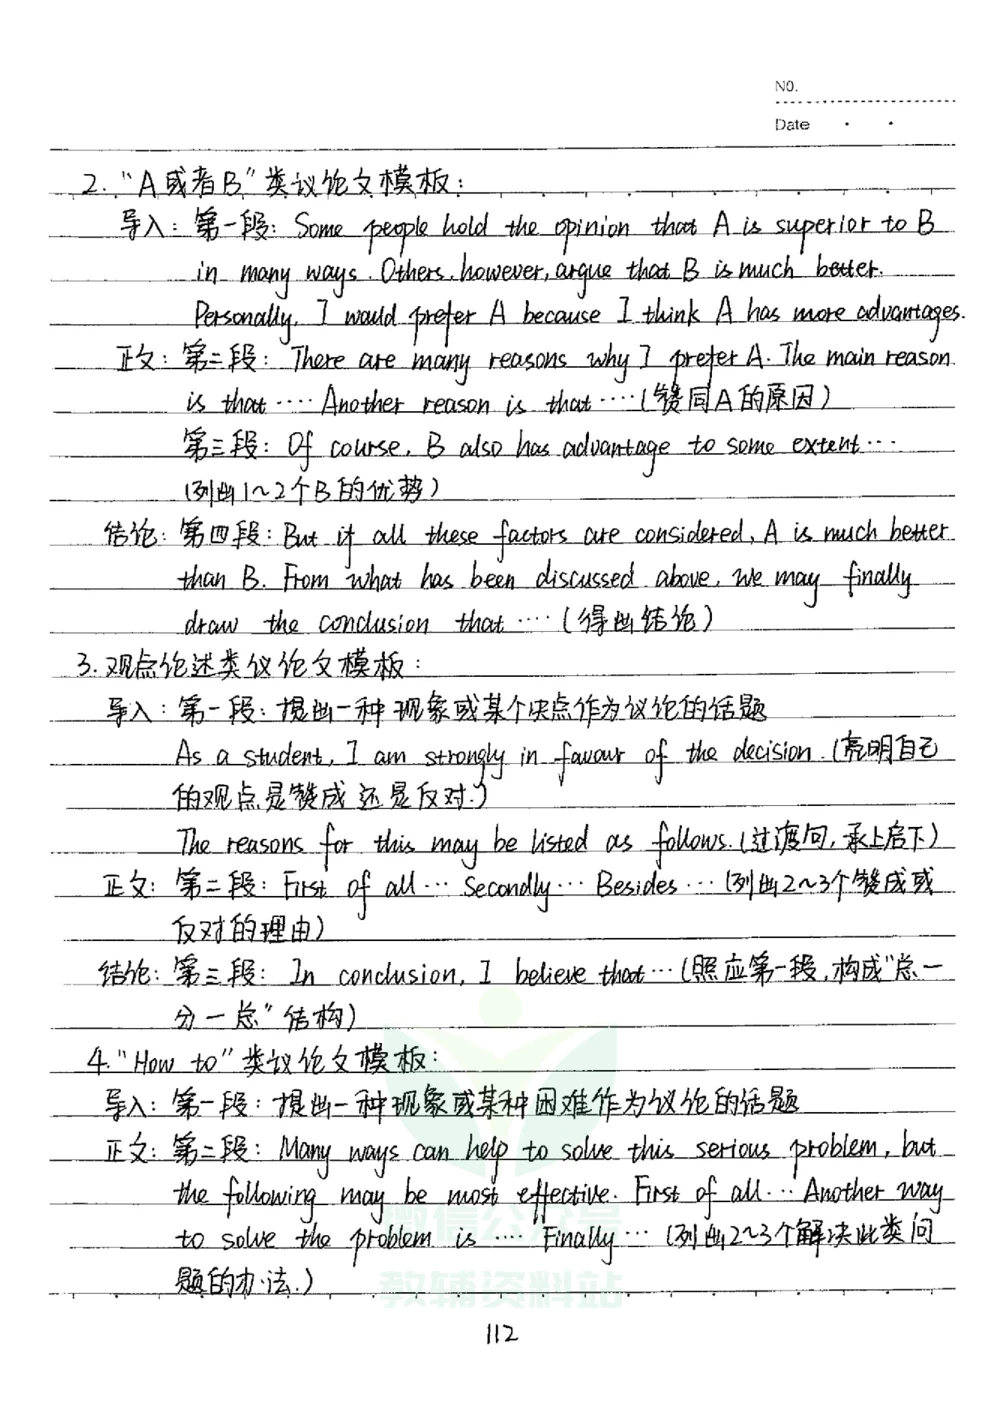 NO.
Date
2. "A或者B"类议论文模板:
导入: 第一段: Some people hold the opinion that A is superior to B
in many ways. Others, however, argue that B is much better.
Personally, I would prefer A because I think A has more advantages.
正文: 第二段: There are many reasons why I prefer A. The main reason
is that ···· Another reason is that ···· (赞同A的原因)
第三段: Of course, B also has advantage to some extent ···
(列出1~2个B的优势)
结论: 第四段: But if all these factors are considered, A is much better
than B. From what has been discussed above, we may finally
draw the conclusion that ···· (得出结论)
3. 观点论述类议论文模板:
导入: 第一段: 提出一种现象或某个决点作为议论的话题
As a student, I am strongly in favour of the decision. (亮明自己
的观点是赞成还是反对.)
The reasons for this may be listed as follows. (过渡句, 承上启下)
正文: 第二段: First of all ··· Secondly ··· Besides ··· (列出2~3个赞成或
反对的理由)
结论: 第三段: In conclusion, I believe that ··· (照应第一段, 构成"总一
分一总"结构)
4. "How to"类议论文模板:
导入: 第一段: 提出一种现象或某种困难作为议论的话题
正文: 第二段: Many ways can help to solve this serious problem, but
the following may be most effective. First of all ··· Another way
to solve the problem is ···· Finally ··· (列出2~3个解决此类问
题的办法.)
微信公众号
教辅资料站
112